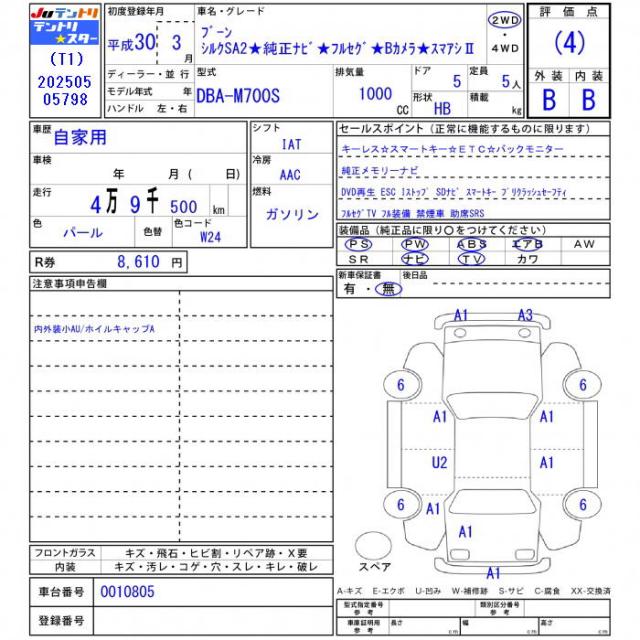 JUテントリ
テントリ
★スター
(T1)
202505
05798
初度登録年月
平成30年3月
ディーラー・並行
モデル年式 年
ハンドル 左・右
車名・グレード
ブーン
シルクSA2★純正ナビ★フルセグ★Bカメラ★スマアシⅡ
2WD
・
4WD
型式
DBA-M700S
排気量
1000
CC
ドア
5
定員
5人
形状
HB
積載
kg
評価点
(4)
外装 内装
B B
車歴
自家用
車検
年 月( 日)
走行
4万9千500km
色
パール
色替
色コード
W24
シフト
IAT
冷房
AAC
燃料
ガソリン
セールスポイント(正常に機能するものに限ります)
キーレス☆スマートキー☆ETC☆バックモニター
純正メモリーナビ
DVD再生 ESC Iストップ SDナビ スマートキー プリクラッシュセーフティ
フルセグTV フル装備 禁煙車 助席SRS
装備品(純正品に限り○をつけてください)
PS PW ABS エアB AW
SR ナビ TV カワ
新車保証書
有・無
後日品
R券
8,610 円
注意事項申告欄
内外装小AU/ホイルキャップA
A1 A3
6 6
A1 A1
U2 A1
6 6
A1
A1
A1
スペア
フロントガラス キズ・飛石・ヒビ割・リペア跡・X要
内装 キズ・汚レ・コゲ・穴・スレ・キレ・破レ
車台番号 0010805
登録番号
A-キズ E-エクボ U-凹み W-補修跡 S-サビ C-腐食 XX-交換済
型式指定番号
参考
類別区分番号
参考
車庫証明用
参考
長さ cm 幅 cm 高さ cm